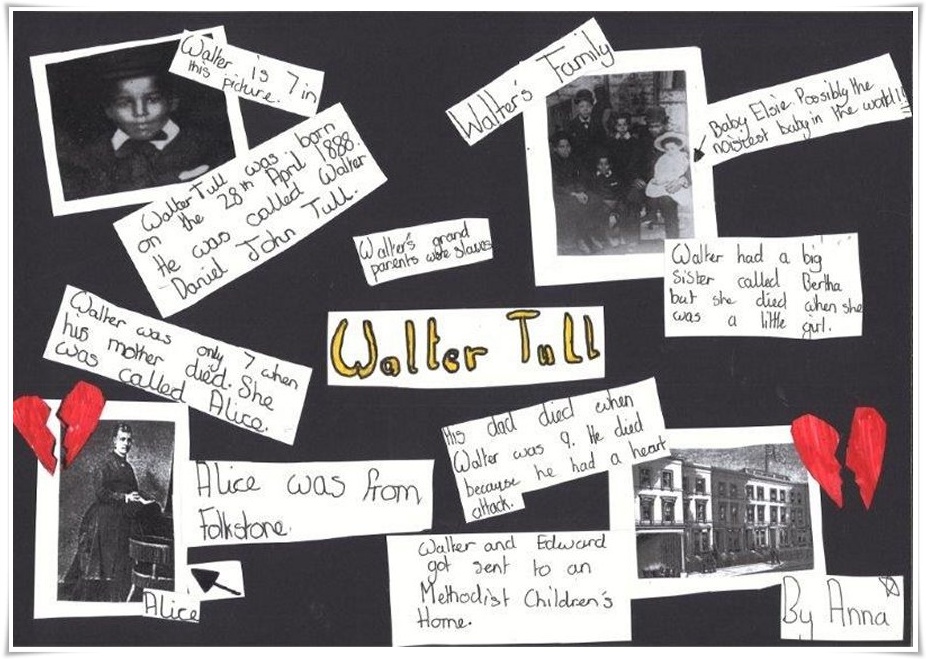 Walter is 7 in
this picture.
Walter Tull was born
on the 28th April 1888.
He was called Walter
Daniel John Tull.
Walter's Family
Baby Elsie. Possibly the
noisiest baby in the world!!
Walter's grand
parents were slaves
Walter had a big
sister called Bertha
but she died when she
was a little girl.
Walter Tull
Walter was only 7 when
his mother died. She
was called Alice.
Alice was from
Folkstone.
Alice
His dad died when
Walter was 9. He died
because he had a heart
attack.
Walter and Edward
got sent to an
Methodist Children's
Home.
By Anna